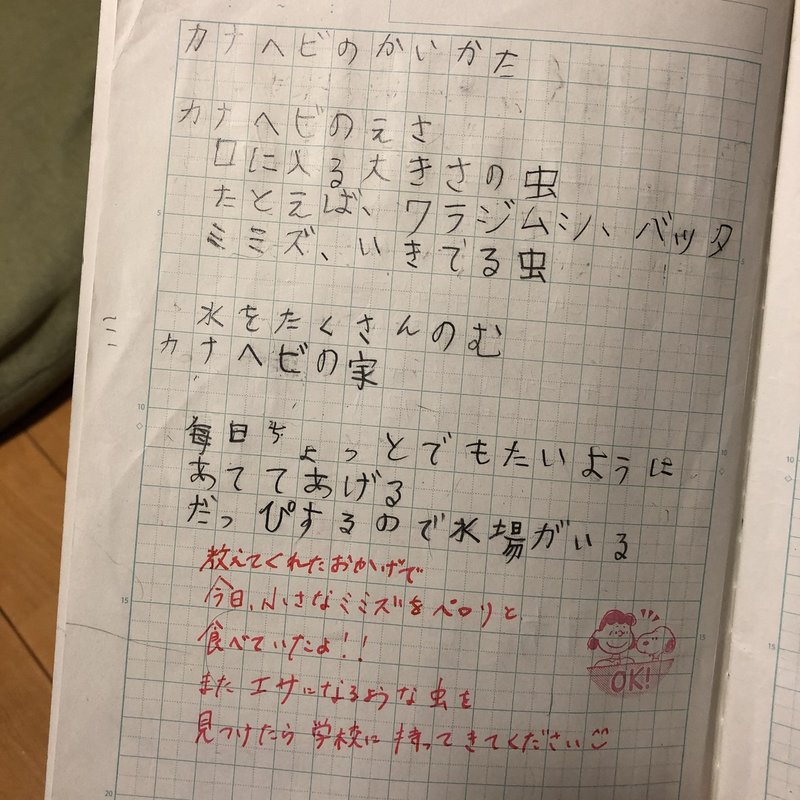 カナヘビのかいかた
カナヘビのえさ
口に入る大きさの虫
たとえば、ワラジムシ、バッタ
ミミズ、いきてる虫
水をたくさんのむ
カナヘビの家
毎日ちょっとでもたいように
あててあげる
だっぴするので水場がいる
教えてくれたおかげで
今日、小さなミミズをペロリと
食べていたよ!!
また エサになるような虫を
見つけたら 学校に 持ってきてください
OK!
5
10
15
20
5
10
15